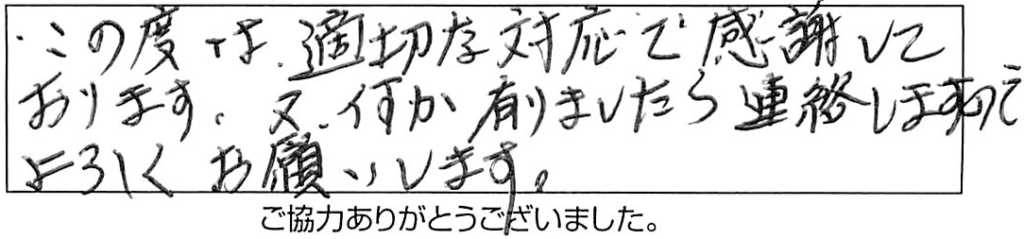 この度は、適切な対応で感謝して
おります。又、何か有りましたら連絡しますので
よろしくお願いします。
ご協力ありがとうございました。